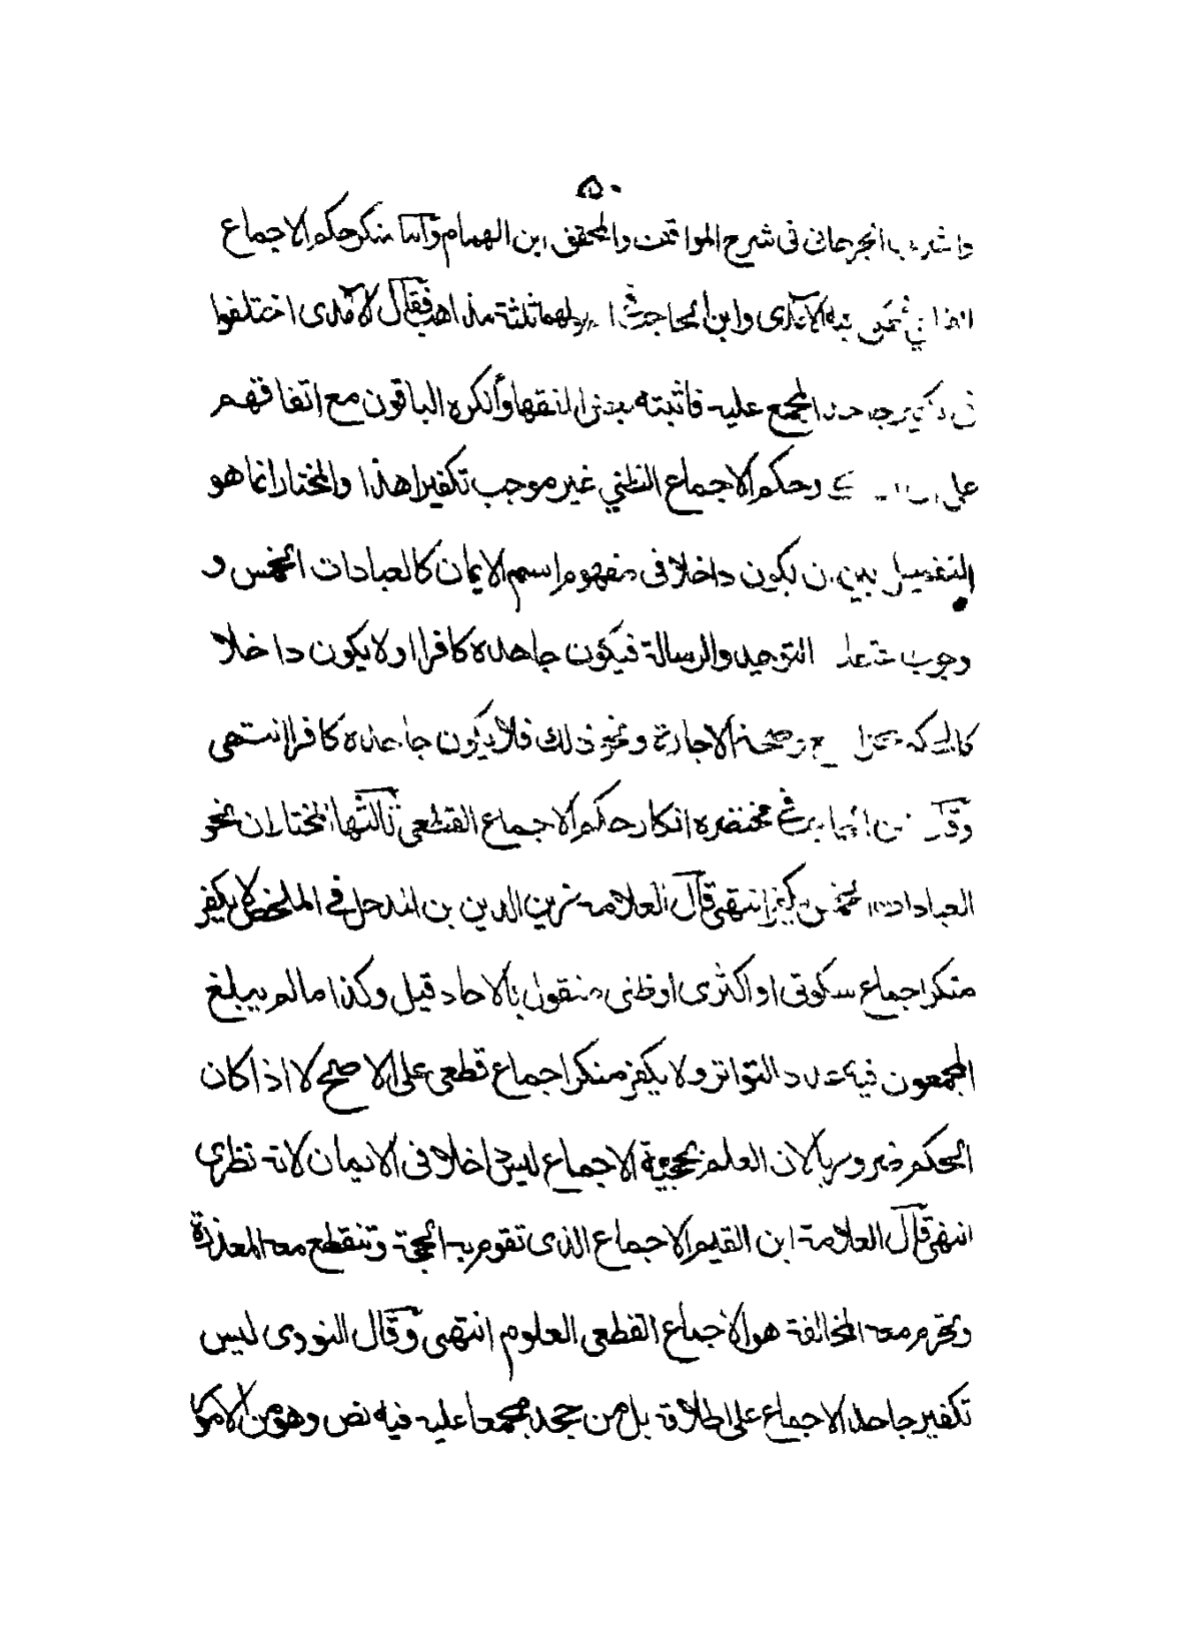 ٥٠
الجرجانى فى شرح المواقف والمحقق ابن الهمام وآما منكر حكم الاجماع
الآمدى وابن الحاجب ثلثة مذاهب فقال الآمدى اختلفوا
فى المجمع عليه فاثبته بعض الفقهاء وأنكره الباقون مع اتفاقهم
على وحكم الاجماع الظنى غير موجب تكفيرا هذا والمختار انما هو
التفصيل بين ان يكون داخلا فى مفهوم اسم الايمان كالعبادات الخمس و
وجوب التوحيد والرسالة فيكون جاحده كافرا او لا يكون داخلا
وصحة الاجارة ونحو ذلك فلا يكون جاحده كافرا انتهى
وقال مختصره انكار حكم الاجماع القطعى ثالثها المختار ان نحو
العبادات يكفر انتهى قال العلامة زين الدين بن فى الملخص لا يكفر
منكر اجماع سكوتى او اكثرى او ظنى منقول بالاحاد قيل وكذا ما لم يبلغ
المجمعون فيه عدد التواتر ولا يكفر منكر اجماع قطعى على الاصح لا اذا كان
الحكم ضروريا لان العلم بحجية الاجماع ليس داخلا فى الايمان لانه نظرى
انتهى قال العلامة ابن القيم الاجماع الذى تقوم به الحجة وتنقطع معه المعذرة
وتحرم معه المخالفة هو الاجماع القطعى العلوم انتهى وقال النووى ليس
تكفير جاحد الاجماع على اطلاقه بل من جحد مجمعا عليه فيه نص وهو من الامور